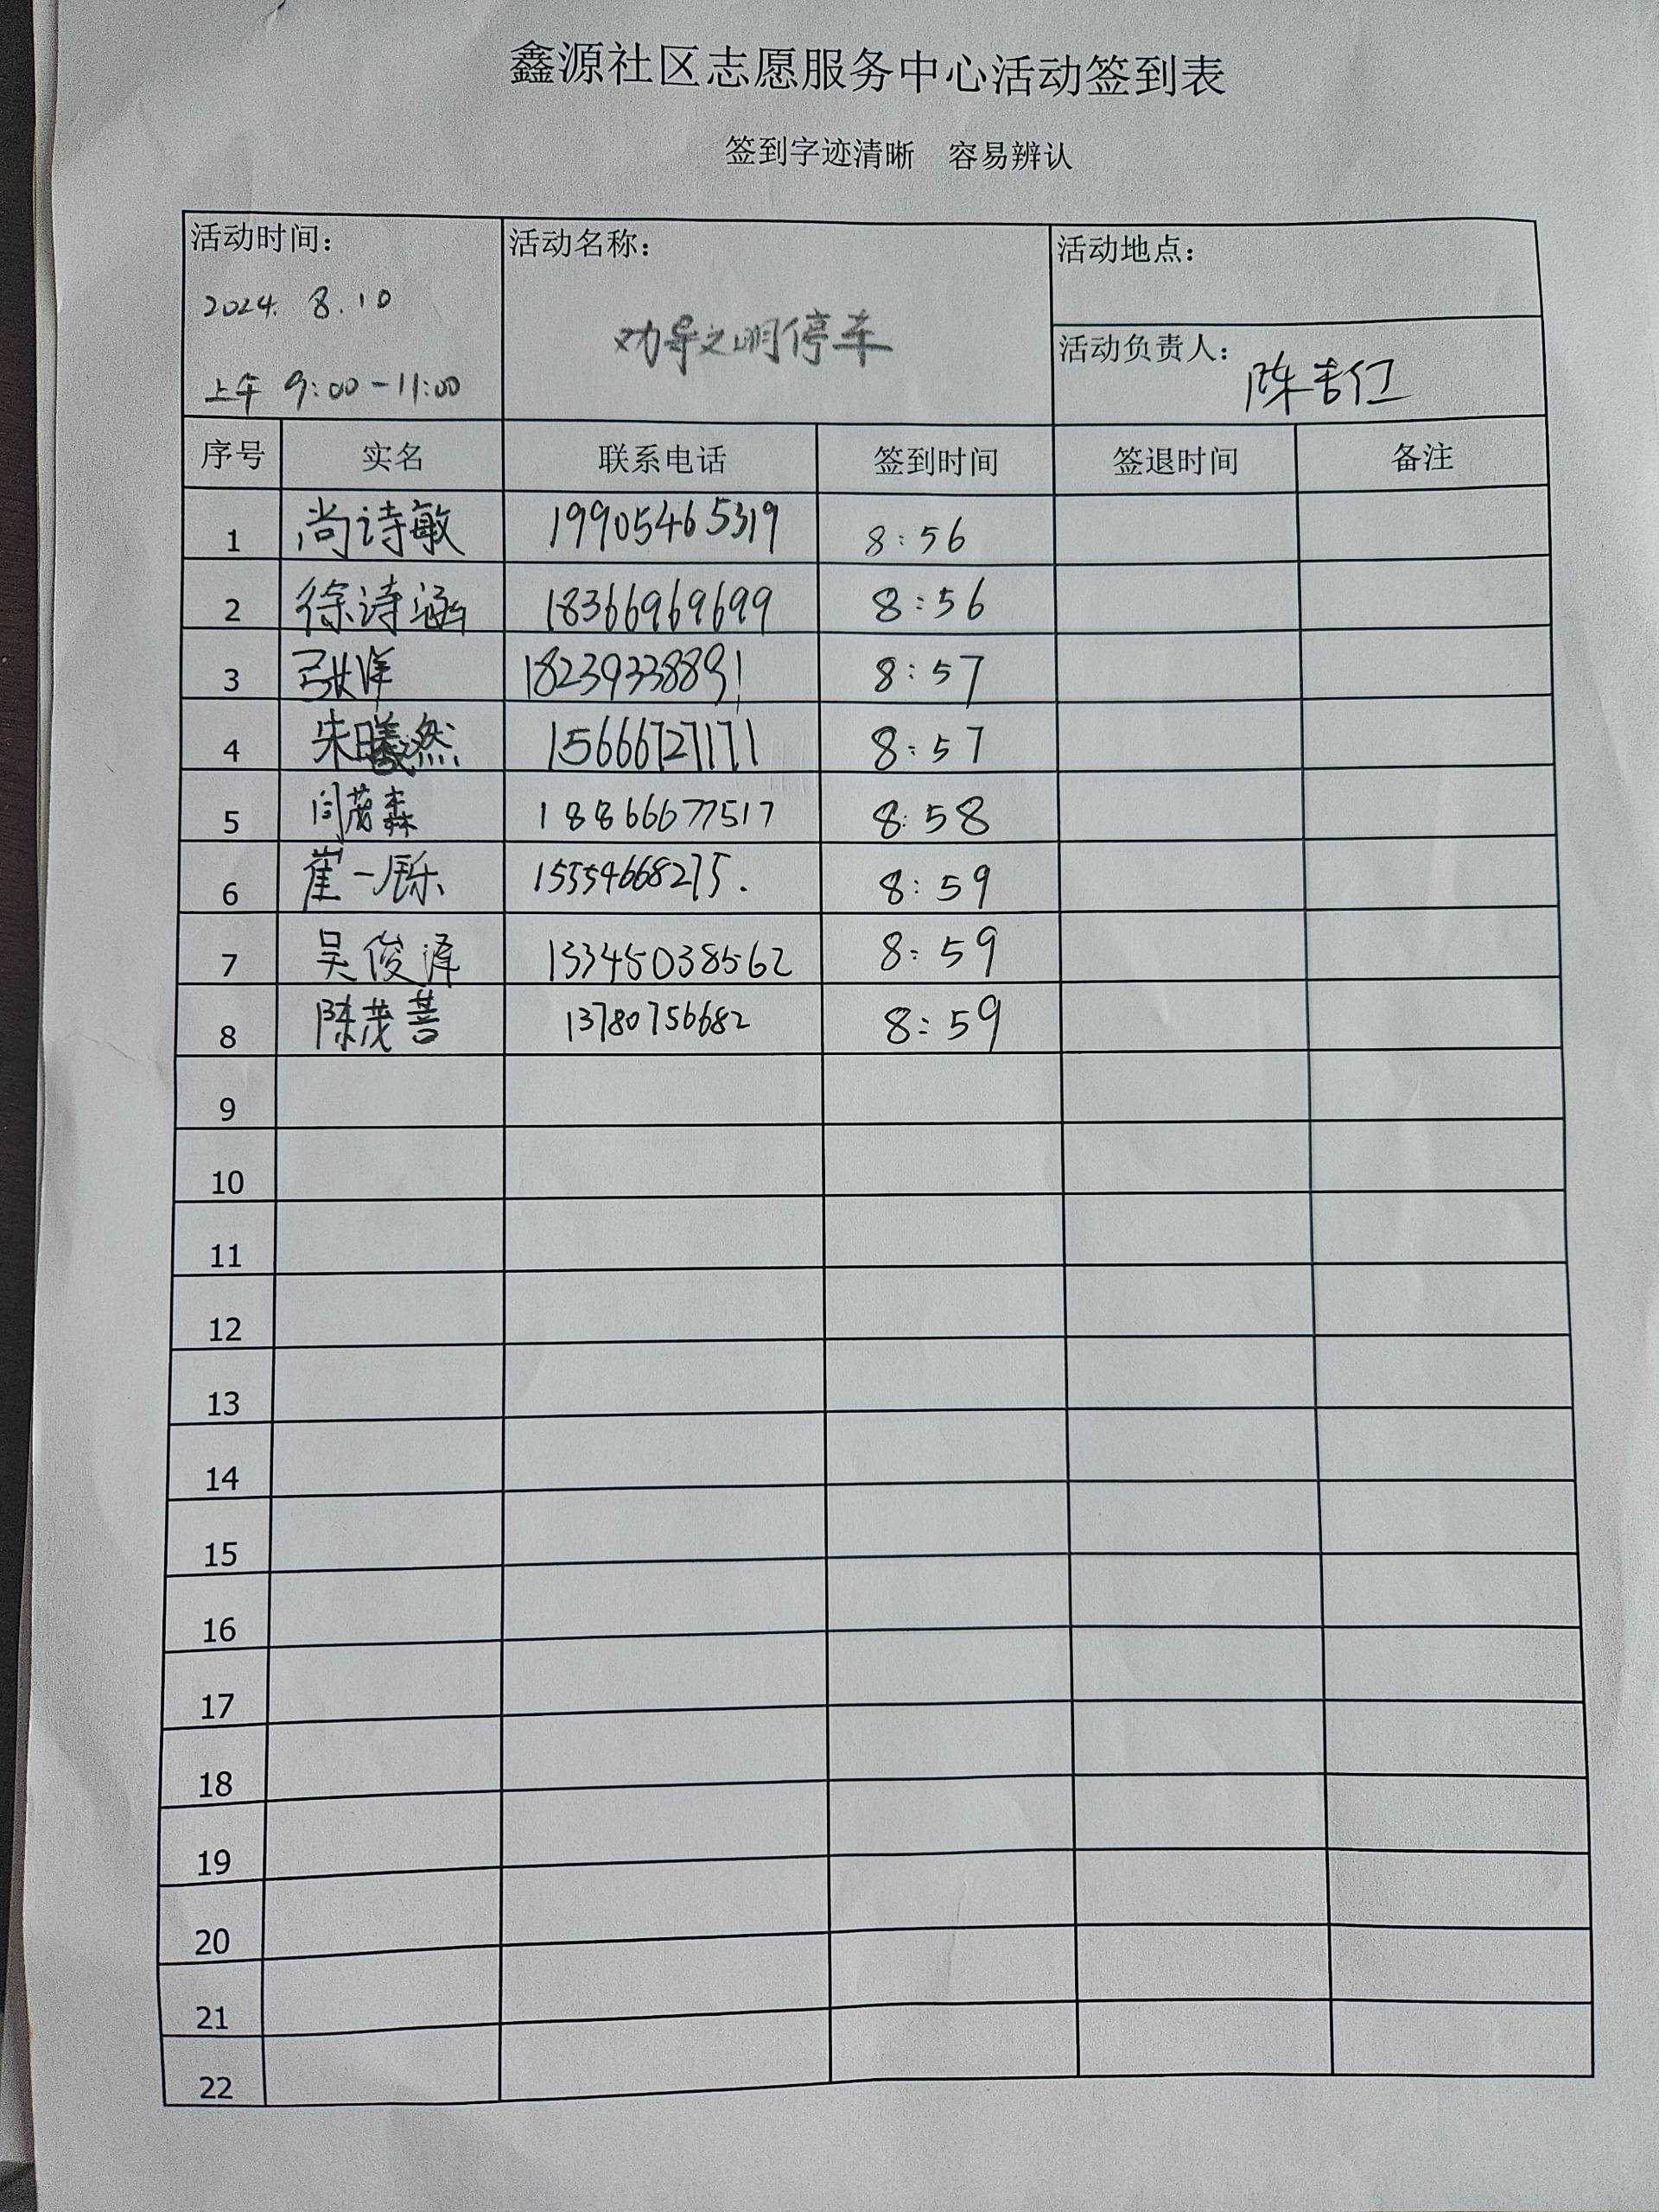 鑫源社区志愿服务中心活动签到表
签到字迹清晰 容易辨认
活动时间： 活动名称： 活动地点：
2024. 8.10
劝导文明停车
活动负责人： 陈吉仁
上午 9:00-11:00
序号 实名 联系电话 签到时间 签退时间 备注
1 尚诗敏 19905465319 8:56
2 徐诗涵 18366969699 8:56
3 张洋 18239338891 8:57
4 朱曦然 15666727171 8:57
5 闫茂森 18866677517 8:58
6 崔一 15554668275. 8:59
7 吴俊泽 13345038562 8:59
8 陈茂菩 13780756682 8:59
9
10
11
12
13
14
15
16
17
18
19
20
21
22